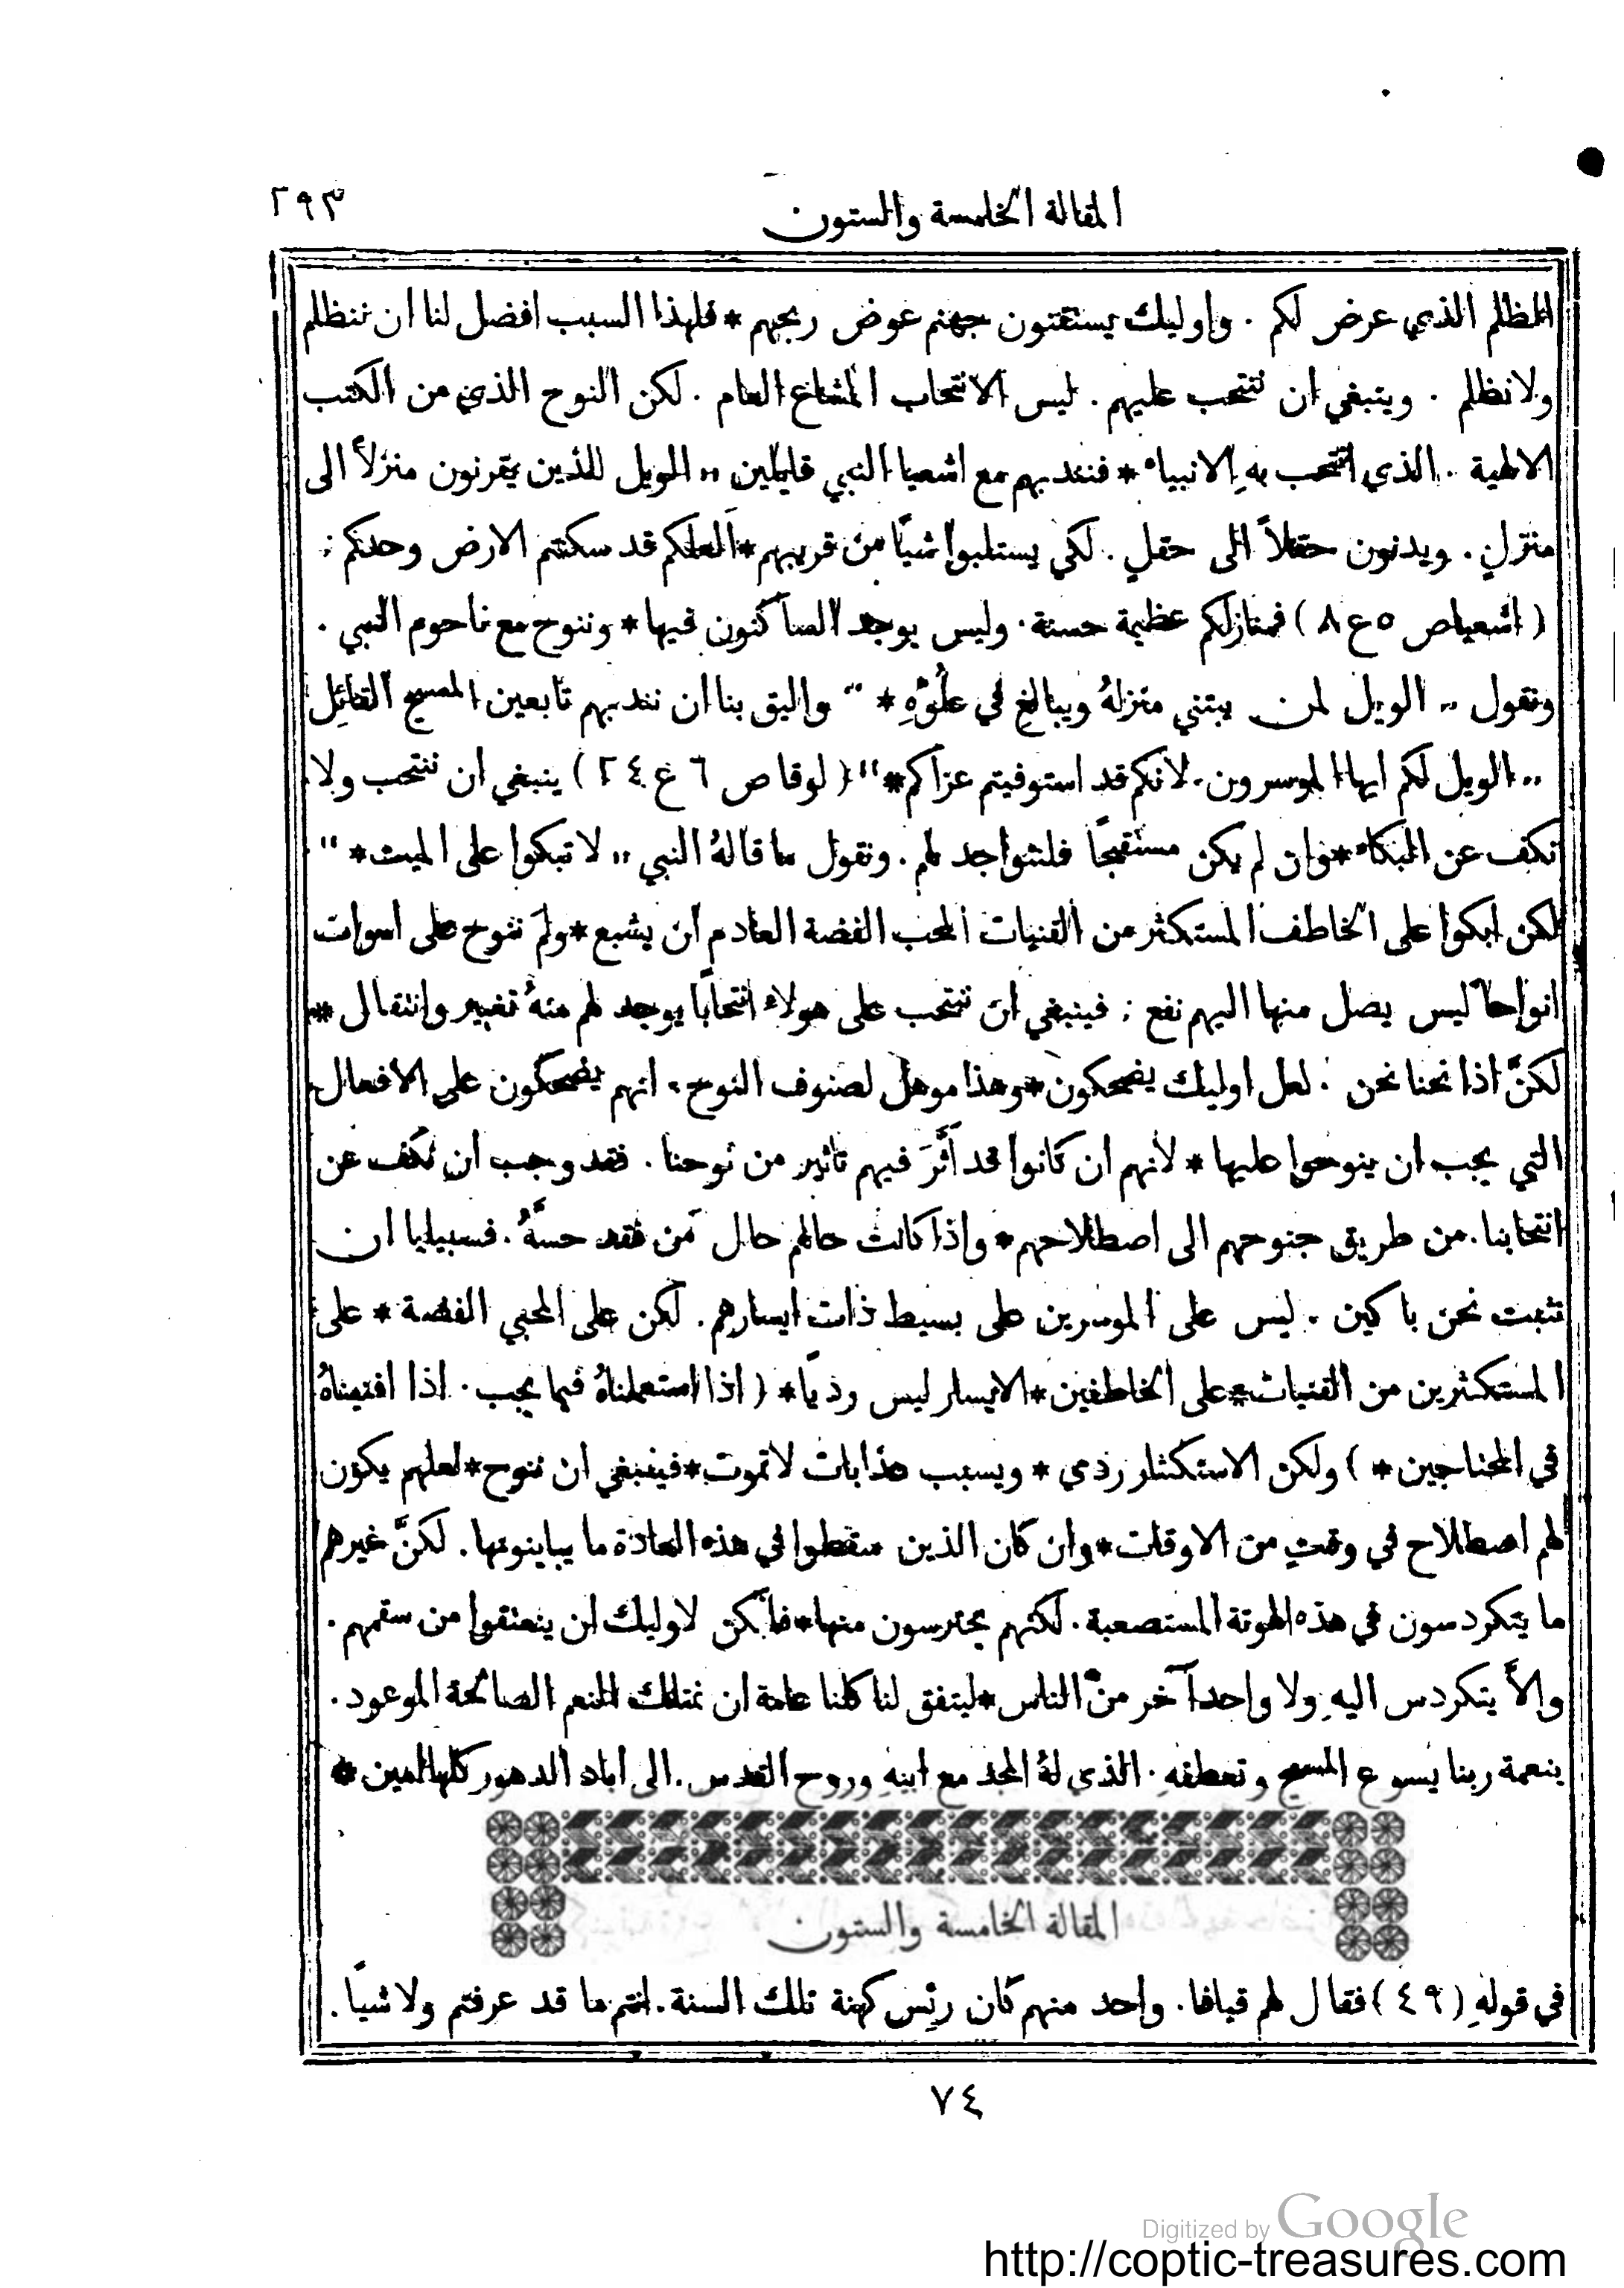 المقالة الخامسة والستون ٢٩٣
المظلم الذي عرض لكم . واوليك يستقنون جهنم عوض ربحهم * فلهذا السبب افضل لنا ان ننظلم
ولا نظلم . وينبغي ان ننتحب عليهم . ليس الانتحاب المشاع العام . لكن النوح الذي من الكتب
الالهية . الذي انتحب بهِ الانبياء * فنندبهم مع اشعيا النبي قايلين ,, الويل للذين يقرنون منزلاً الى
منزلٍ . ويدنون حقلاً الى حقلٍ . لكي يستلبوا شيًا من قريبهم * ألعلكم قد سكنتم الارض وحدكم :
( اشعيا ص ٥ ع ٨ ) فمنازلكم عظيمة حسنة . وليس يوجد الساكنون فيها * وننوح مع ناحوم النبي .
ونقول ,, الويل لمن يبتني منزلهُ ويبالغ في علُوّهِ * “ واليق بنا ان نندبهم تابعين المسيح القائِل
,, الويل لكم ايها الموسرون . لانكم قد استوفيتم عزاكم * “ ( لوقا ص ٦ ع ٢٤ ) ينبغي ان ننتحب ولا
نكف عن البكاء * وان لم يكن مستقبحًا فلنتواجد لهم . ونقول ما قالهُ النبي ,, لا تبكوا على الميت * “
لكن ابكوا على الخاطف المستكثر من القنيات المحب الفضة العادم ان يشبع * ولمَ ننوح على اموات
انواحاً ليس يصل منها اليهم نفع ; فينبغي ان ننتحب على هولاء انتحابًا يوجد لهم منهُ تغيير وانتقال *
لكنَّ اذا نحنا نحن . لعل اوليك يضحكون * وهذا موهل لصنوف النوح . انهم يضحكون على الافعال
التي يجب ان ينوحوا عليها * لانهم ان كانوا قد أثَّرَ فيهم تاثير من نوحنا . فقد وجب ان نكف عن
انتحابنا . من طريق جنوحهم الى اصطلاحهم * واذا كانت حالهم حال مَن فقد حسَّهُ . فسبيلنا ان
نثبت نحن باكين . ليس على الموسرين على بسيط ذات ايسارهم . لكن على المحبي الفضة * على
المستكثرين من القنيات * على الخاطفين * الايسار ليس رديًا * ( اذا استعملناهُ فيما يجب . اذا افنيناهُ
في المحتاجين * ) ولكن الاستكثار ردي * ويسبب عذابات لا تموت * فينبغي ان ننوح * لعلهم يكون
لهم اصطلاح في وقتٍ من الاوقات * وان كان الذين سقطوا في هذه العادة ما يباينونها . لكنَّ غيرهم
ما يتكردسون في هذه الهوتة المستصعبة . لكنهم يحترسون منها * فليكن لاوليك ان ينعتقوا من سقمهم .
والاَّ يتكردس اليهِ ولا واحداً آخر من الناس * ليتفق لنا كلنا عامة ان نمتلك النعم الصالحة الموعود .
بنعمة ربنا يسوع المسيح وتعطفهِ . الذي لهُ المجد مع ابيهِ وروح القدس . الى اباد الدهور كلها امين *
المقالة الخامسة والستون
في قولهِ ( ٤٩ ) فقال لهم قيافا . واحد منهم كان رئِس كهنة تلك السنة . انتم ما قد عرفتم ولا شيًا .
٧٤
Digitized by Google
http://coptic-treasures.com